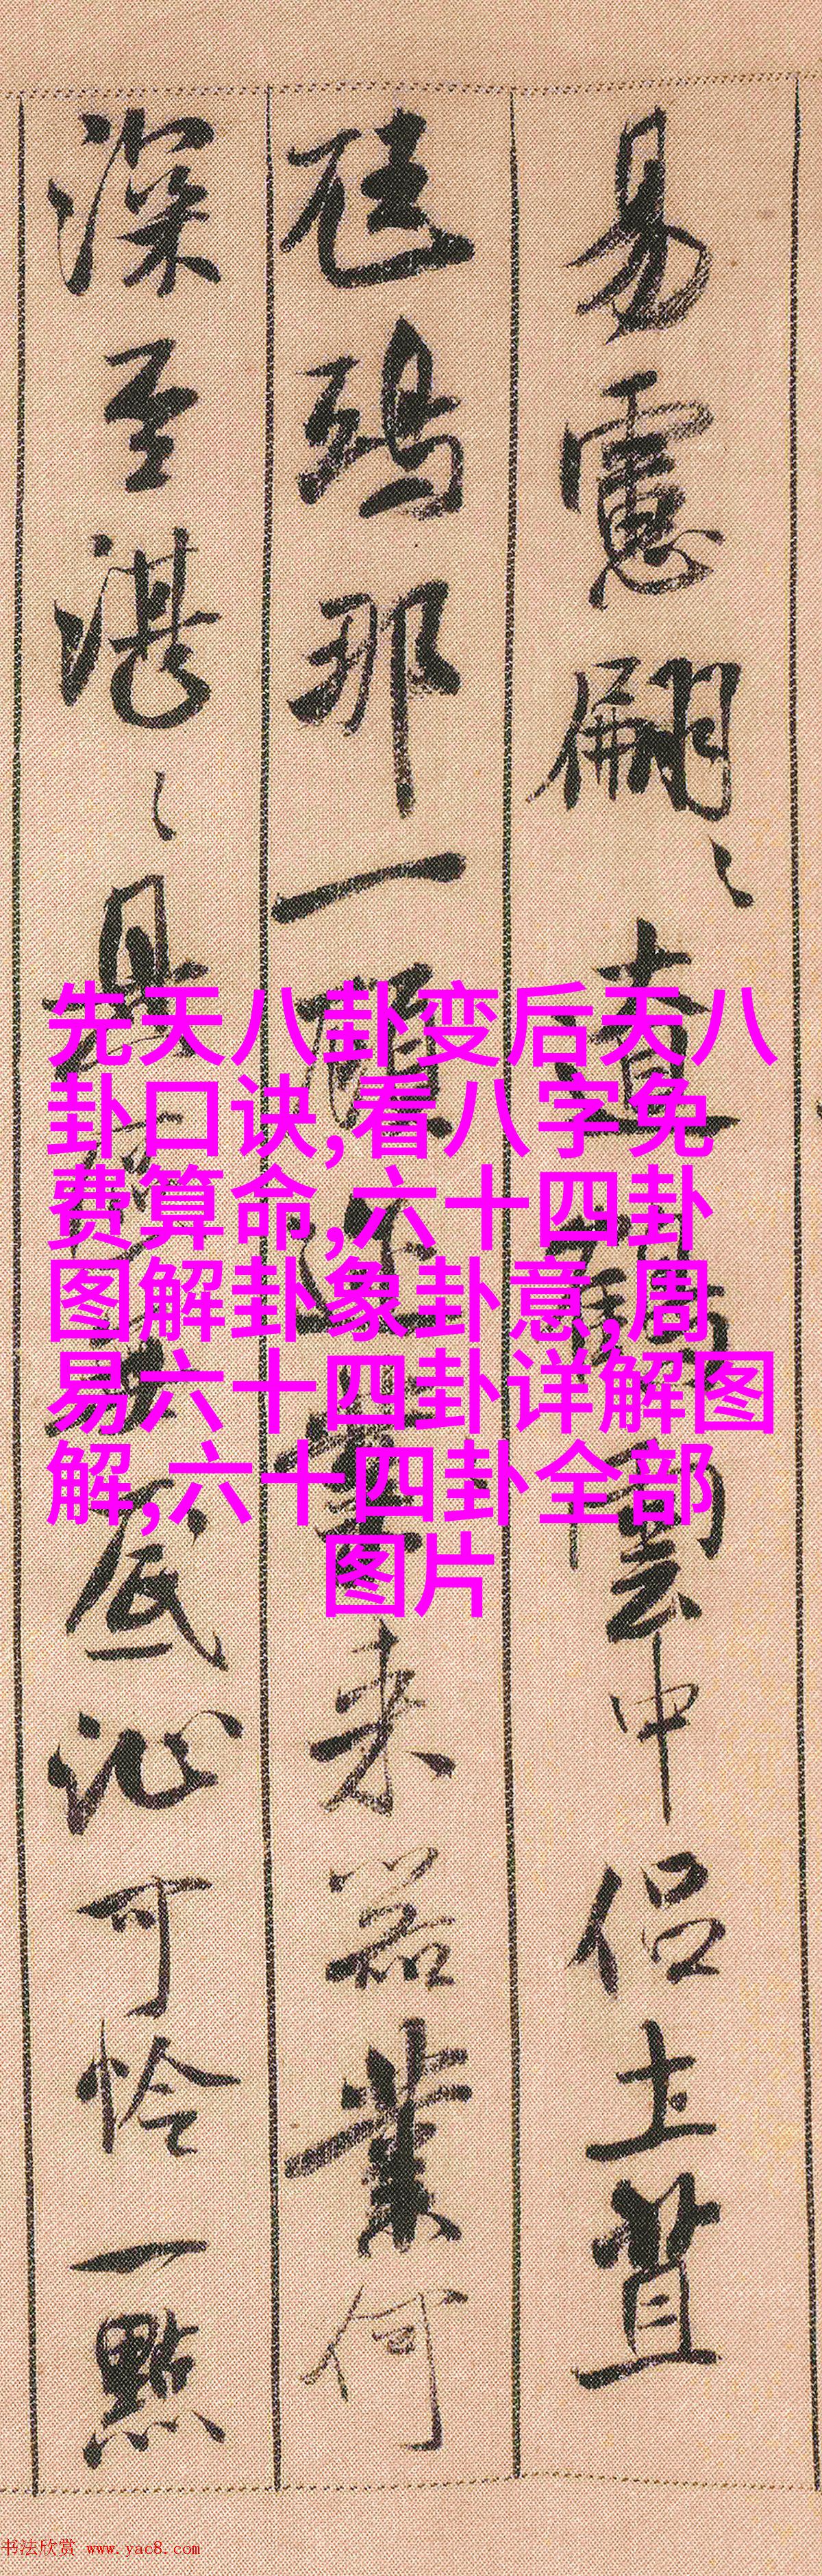 易慮翩〻直
雲中侣土苴
瓦鷄那一顾
来若業何
深至湛〻是
底沁可怜一點
先天八卦变后天八
卦口诀,看八字免
费算命,六十四卦
图解卦象卦意,周
易六十四卦详解图
解,六十四卦全部
图片
书法欣赏 www.yac8.com